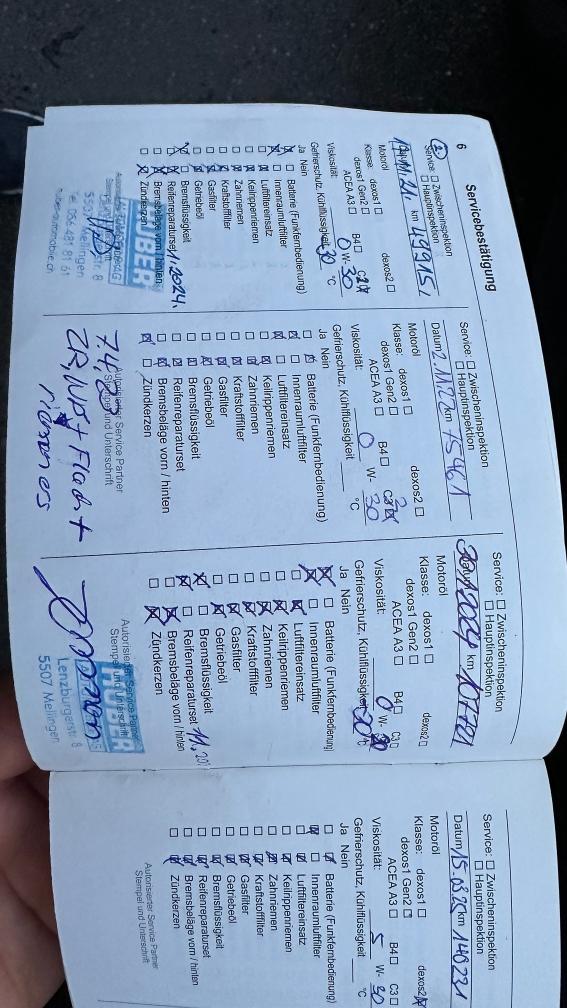 6
Servicebestätigung
Service: ☐ Zwischeninspektion
☐ Hauptinspektion
km 49915
Motoröl
Klasse: dexos1 ☐ dexos2 ☐
dexos1 Gen2 ☐
ACEA A3 ☐ B4 ☐
Viskosität: 0 W- 30
Gefrierschutz, Kühlflüssigkeit -30 °C
Ja Nein
Batterie (Funkfernbedienung)
Innenraumluftfilter
Luftfiltereinsatz
Keilrippenriemen
Zahnriemen
Kraftstofffilter
Gasfilter
Getriebeöl
Bremsflüssigkeit
Reifenreparaturset 11.2024.
Bremsbeläge vorn / hinten
Zündkerzen
HUBER
056 481 81 61
Service: ☐ Zwischeninspektion
☐ Hauptinspektion
Datum km 75461
Motoröl
Klasse: dexos1 ☐ dexos2 ☐
dexos1 Gen2 ☐
ACEA A3 ☐ B4 ☐
Viskosität: 0 W- 30
Gefrierschutz, Kühlflüssigkeit °C
Ja Nein
Batterie (Funkfernbedienung)
Innenraumluftfilter
Luftfiltereinsatz
Keilrippenriemen
Zahnriemen
Kraftstofffilter
Gasfilter
Getriebeöl
Bremsflüssigkeit
Reifenreparaturset
Bremsbeläge vorn / hinten
Zündkerzen
Autorisierter Service Partner
Stempel und Unterschrift
ZR, WP + Flach +
riemen
Service: ☐ Zwischeninspektion
☐ Hauptinspektion
km 107721
Motoröl
Klasse: dexos1 ☐ dexos2 ☐
dexos1 Gen2 ☐
ACEA A3 ☐ B4 ☐ C3 ☐
Viskosität: 0 W- 30
Gefrierschutz, Kühlflüssigkeit -30 °C
Ja Nein
Batterie (Funkfernbedienung)
Innenraumluftfilter
Luftfiltereinsatz
Keilrippenriemen
Zahnriemen
Kraftstofffilter
Gasfilter
Getriebeöl
Bremsflüssigkeit
Reifenreparaturset
Bremsbeläge vorn / hinten
Zündkerzen
Autorisierter Service Partner
Stempel und Unterschrift
HUBER
Lenzburgerstr. 8
5507 Mellingen
Service: ☐ Zwischeninspektion
☐ Hauptinspektion
Datum 15.03.25 km 140231
Motoröl
Klasse: dexos1 ☐ dexos2 ☒
dexos1 Gen2 ☐
ACEA A3 ☐ B4 ☐ C3 ☐
Viskosität: 5 W- 30
Gefrierschutz, Kühlflüssigkeit °C
Ja Nein
Batterie (Funkfernbedienung)
Innenraumluftfilter
Luftfiltereinsatz
Keilrippenriemen
Zahnriemen
Kraftstofffilter
Gasfilter
Getriebeöl
Bremsflüssigkeit
Reifenreparaturset
Bremsbeläge vorn / hinten
Zündkerzen
Autorisierter Service Partner
Stempel und Unterschrift